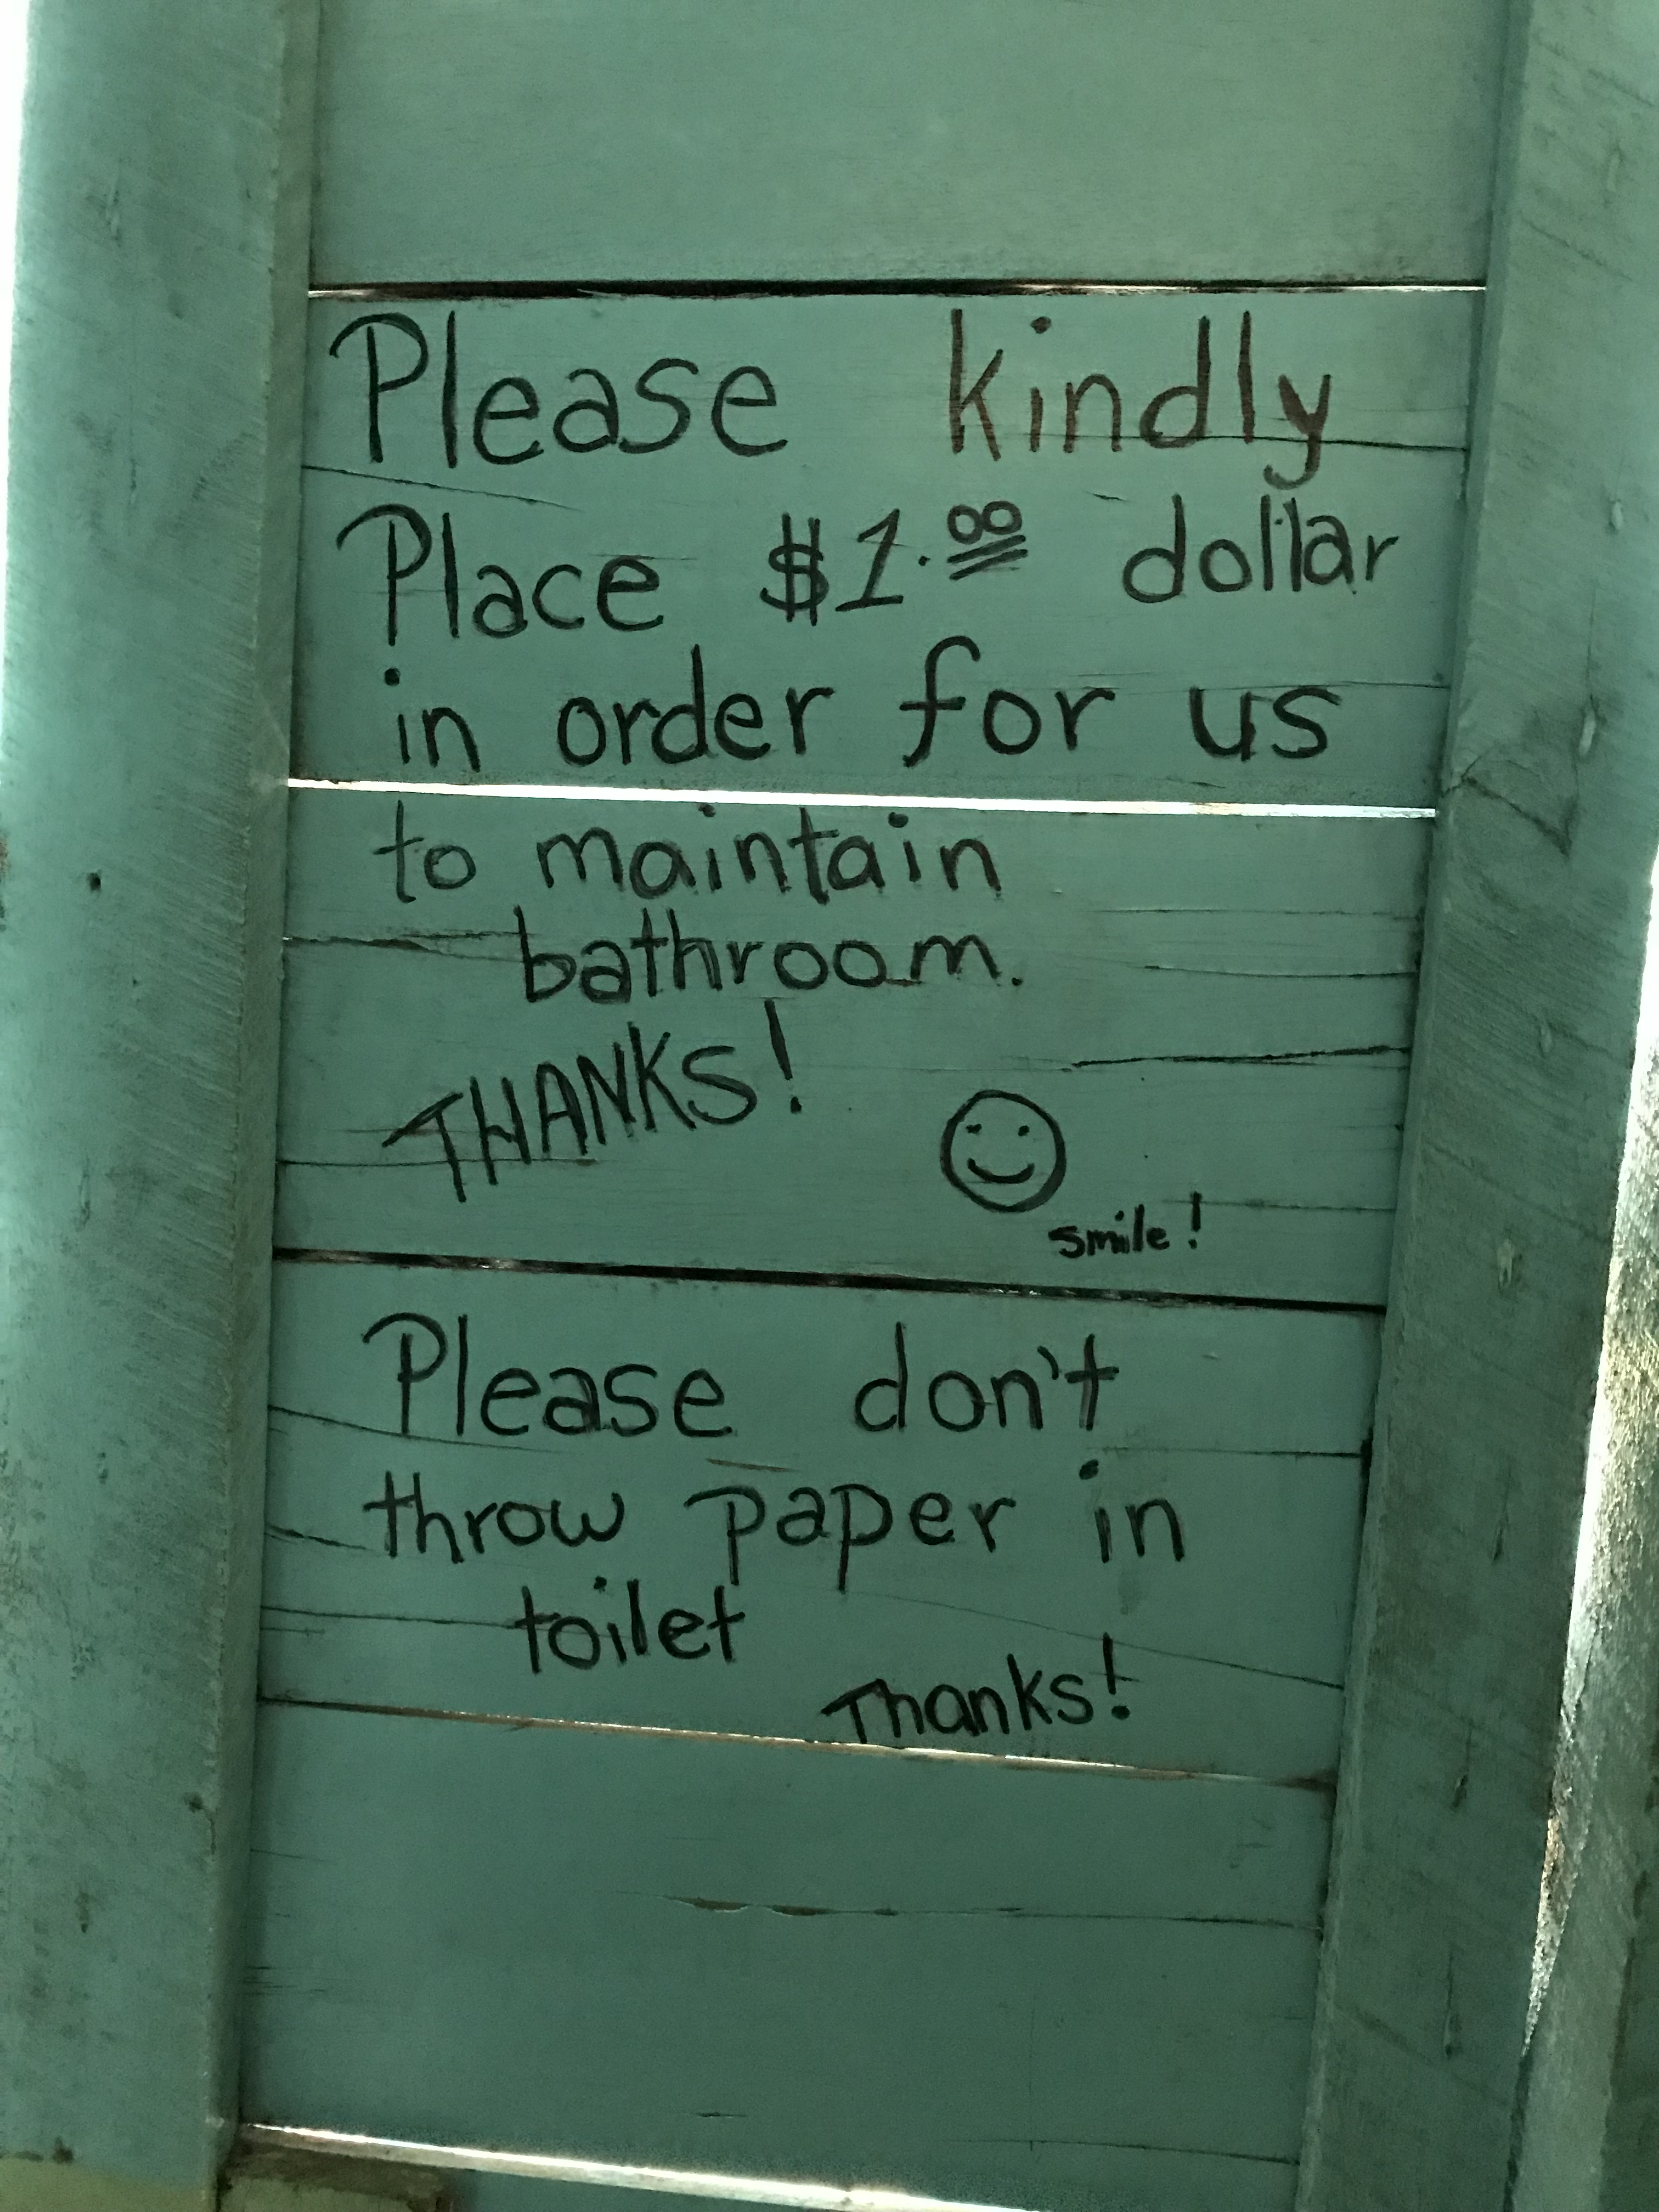 Please kindly
Place $1.00 dollar
in order for us
to maintain
bathroom.
THANKS!
smile!
Please don't
throw paper in
toilet
Thanks!